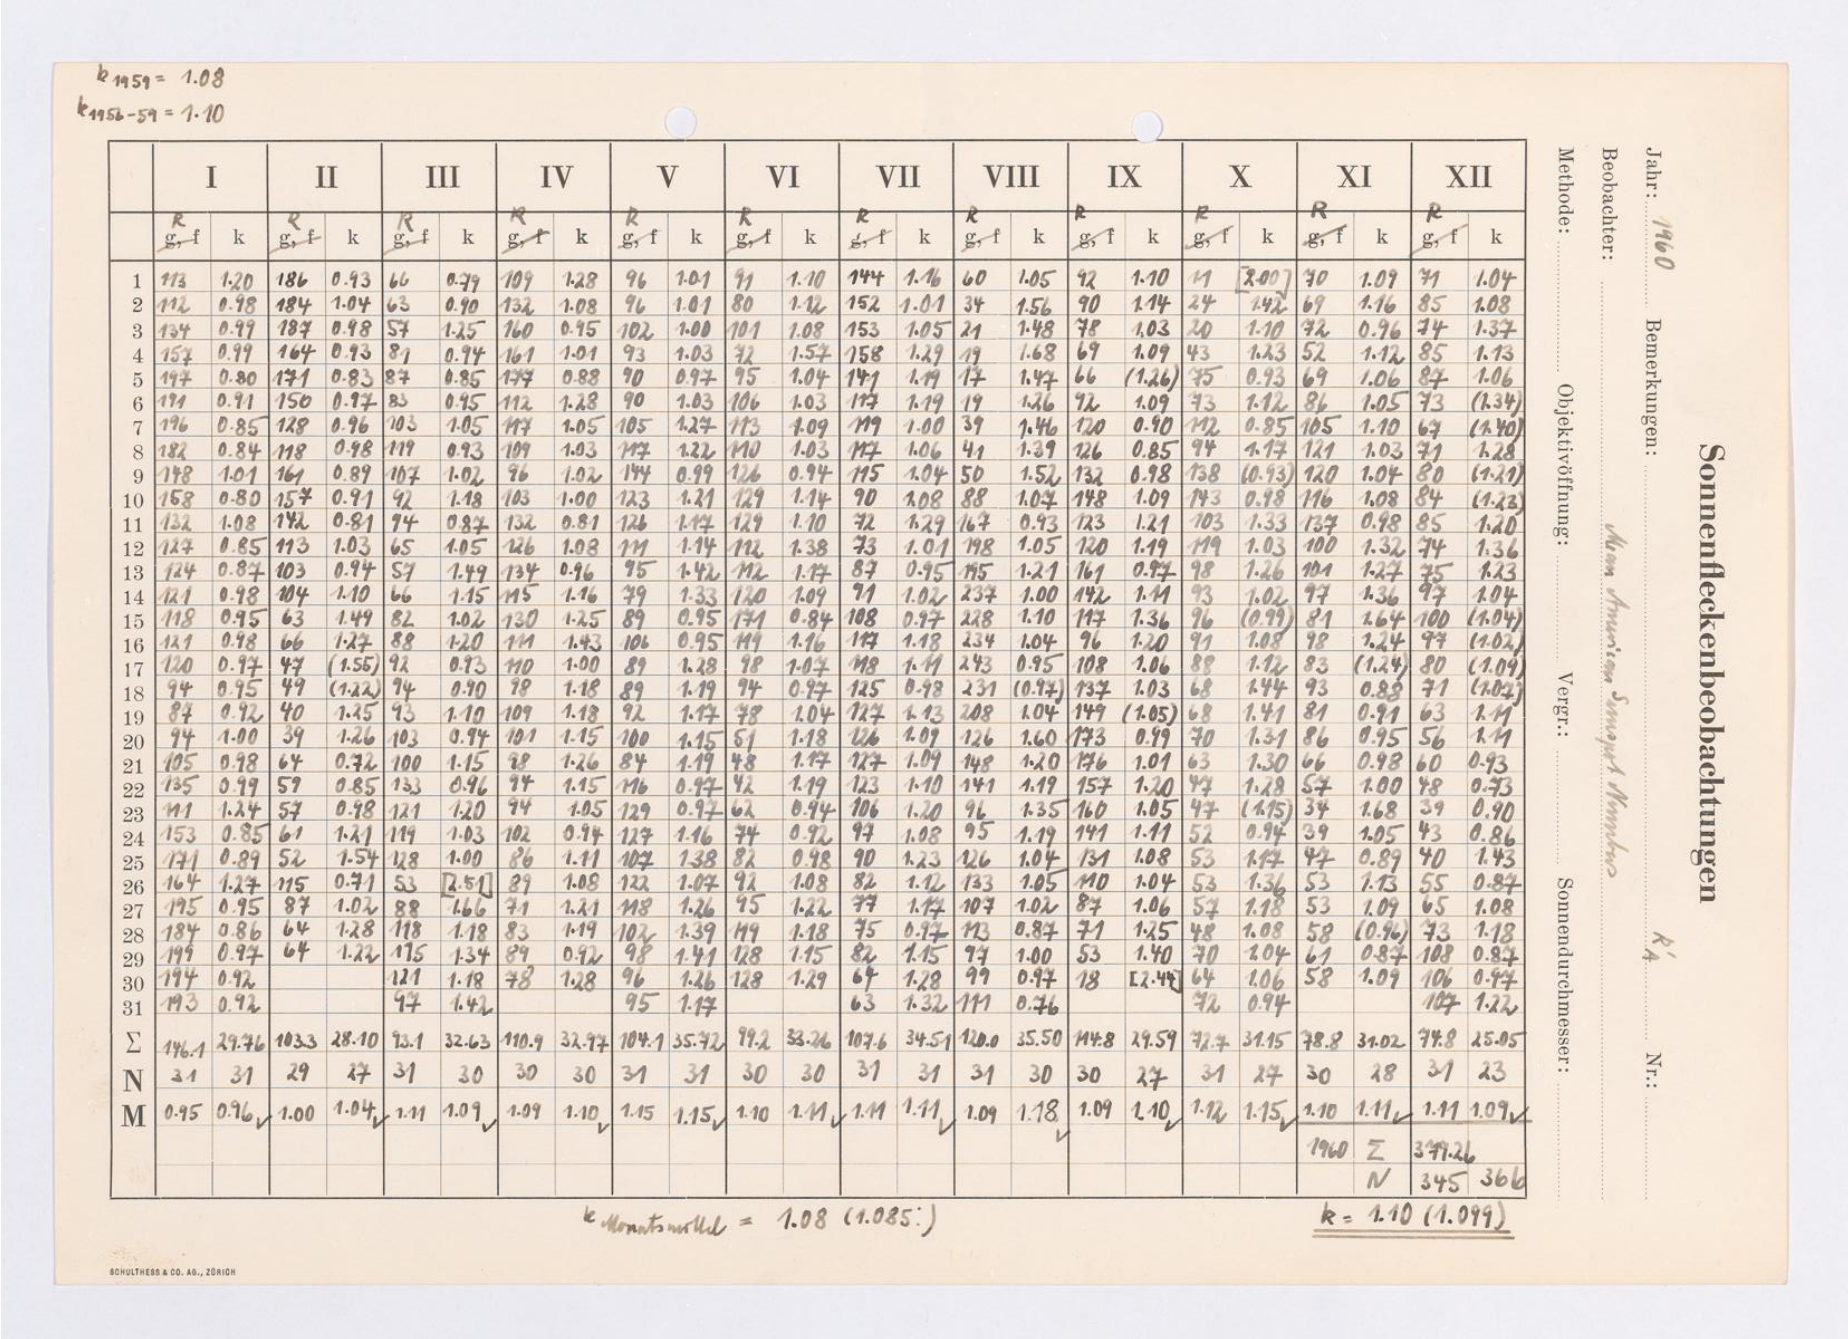 k 1959 = 1.08
k 1956-59 = 1.10
I II III IV V VI VII VIII IX X XI XII
R R R R R R R R R R R R
g, f k g, f k g, f k g, f k g, f k g, f k g, f k g, f k g, f k g, f k g, f k g, f k
1 113 1.20 186 0.93 66 0.79 109 1.28 96 1.01 91 1.10 144 1.16 60 1.05 92 1.10 11 [2.00] 70 1.09 71 1.04
2 112 0.98 184 1.04 63 0.90 132 1.08 96 1.01 80 1.12 152 1.01 34 1.56 90 1.14 24 1.42 69 1.16 85 1.08
3 134 0.99 187 0.98 57 1.25 160 0.95 102 1.00 101 1.08 153 1.05 21 1.48 78 1.03 20 1.10 72 0.96 74 1.37
4 157 0.99 164 0.93 81 0.94 161 1.01 93 1.03 72 1.57 158 1.29 19 1.68 69 1.09 43 1.23 52 1.12 85 1.13
5 197 0.80 171 0.83 87 0.85 177 0.88 90 0.97 95 1.04 141 1.19 17 1.47 66 (1.26) 75 0.93 69 1.06 87 1.06
6 191 0.91 150 0.97 83 0.95 112 1.28 90 1.03 106 1.03 117 1.19 19 1.26 92 1.09 73 1.12 86 1.05 73 (1.34)
7 196 0.85 128 0.96 103 1.05 117 1.05 105 1.27 113 1.09 119 1.00 39 1.46 120 0.90 112 0.85 105 1.10 67 (1.40)
8 182 0.84 118 0.98 119 0.93 109 1.03 117 1.22 110 1.03 117 1.06 41 1.39 126 0.85 94 1.17 121 1.03 71 1.28
9 148 1.01 161 0.89 107 1.02 96 1.02 144 0.99 126 0.94 115 1.04 50 1.52 132 0.98 138 (0.93) 120 1.04 80 (1.21)
10 158 0.80 157 0.91 92 1.18 103 1.00 123 1.21 129 1.14 90 1.08 88 1.07 148 1.09 143 0.98 116 1.08 84 (1.23)
11 132 1.08 142 0.81 94 0.87 132 0.81 126 1.17 129 1.10 72 1.29 167 0.93 123 1.21 103 1.33 137 0.98 85 1.20
12 127 0.85 113 1.03 65 1.05 126 1.08 111 1.14 112 1.38 73 1.01 198 1.05 120 1.19 119 1.03 100 1.32 74 1.36
13 124 0.87 103 0.94 57 1.49 134 0.96 95 1.42 112 1.17 87 0.95 195 1.21 161 0.97 98 1.26 101 1.27 75 1.23
14 121 0.98 104 1.10 66 1.15 115 1.16 79 1.33 120 1.09 91 1.02 237 1.00 142 1.11 93 1.02 97 1.36 97 1.04
15 118 0.95 63 1.49 82 1.02 130 1.25 89 0.95 171 0.84 108 0.97 228 1.10 117 1.36 96 (0.99) 81 1.64 100 (1.04)
16 121 0.98 66 1.27 88 1.20 111 1.43 106 0.95 119 1.16 117 1.18 234 1.04 96 1.20 91 1.08 98 1.24 97 (1.02)
17 120 0.97 47 (1.55) 92 0.93 110 1.00 89 1.28 98 1.07 118 1.11 243 0.95 108 1.06 88 1.12 83 (1.24) 80 (1.09)
18 94 0.95 49 (1.22) 94 0.90 98 1.18 89 1.19 94 0.97 125 0.98 231 (0.97) 137 1.03 68 1.44 93 0.88 71 (1.07)
19 87 0.92 40 1.25 93 1.10 109 1.18 92 1.17 78 1.04 127 1.13 208 1.04 149 (1.05) 68 1.41 81 0.91 63 1.11
20 94 1.00 39 1.26 103 0.94 101 1.15 100 1.15 51 1.18 126 1.09 126 1.60 173 0.99 70 1.31 86 0.95 56 1.11
21 105 0.98 64 0.72 100 1.15 98 1.26 84 1.19 48 1.17 127 1.09 148 1.20 176 1.01 63 1.30 66 0.98 60 0.93
22 135 0.99 59 0.85 133 0.96 94 1.15 116 0.97 42 1.19 123 1.10 141 1.19 157 1.20 47 1.28 57 1.00 48 0.73
23 111 1.24 57 0.98 121 1.20 94 1.05 129 0.97 62 0.94 106 1.20 96 1.35 160 1.05 47 (1.15) 34 1.68 39 0.90
24 153 0.85 61 1.21 119 1.03 102 0.94 127 1.16 74 0.92 97 1.08 95 1.19 141 1.11 52 0.94 39 1.05 43 0.86
25 171 0.89 52 1.54 128 1.00 86 1.11 107 1.38 82 0.98 90 1.23 126 1.04 131 1.08 53 1.17 47 0.89 40 1.43
26 164 1.27 115 0.71 53 [2.51] 89 1.08 122 1.07 92 1.08 82 1.12 133 1.05 110 1.04 53 1.36 53 1.13 55 0.87
27 195 0.95 87 1.02 88 1.66 71 1.21 118 1.26 95 1.22 77 1.17 107 1.02 87 1.06 57 1.18 53 1.09 65 1.08
28 184 0.86 64 1.28 118 1.18 83 1.19 102 1.39 119 1.18 75 0.97 113 0.87 71 1.25 48 1.08 58 (0.96) 73 1.18
29 199 0.97 64 1.22 115 1.34 89 0.92 98 1.41 128 1.15 82 1.15 97 1.00 53 1.40 70 1.04 61 0.87 108 0.87
30 194 0.92 121 1.18 78 1.28 96 1.26 128 1.29 64 1.28 99 0.97 18 [2.44] 64 1.06 58 1.09 106 0.97
31 193 0.92 97 1.42 95 1.17 63 1.32 111 0.76 72 0.94 107 1.22
Σ 146.1 29.76 103.3 28.10 93.1 32.63 110.9 32.97 104.1 35.72 99.2 33.26 107.6 34.51 120.0 35.50 114.8 29.59 72.7 31.15 78.8 31.02 74.8 25.05
N 31 31 29 27 31 30 30 30 31 31 30 30 31 31 31 30 30 27 31 27 30 28 31 23
M 0.95 0.96 1.00 1.04 1.11 1.09 1.09 1.10 1.15 1.15 1.10 1.11 1.11 1.11 1.09 1.18 1.09 1.10 1.12 1.15 1.10 1.11 1.11 1.09
1960 Σ 379.26
N 345 366
k Monatsmittel = 1.08 (1.085:)
k = 1.10 (1.099)
SCHULTHESS & CO. AG., ZÜRICH
Sonnenfleckenbeobachtungen
Jahr: 1960 Bemerkungen: R'A Nr.:
Beobachter: Mean American Sunspot Numbers
Methode: Objektivöffnung: Vergr.: Sonnendurchmesser: